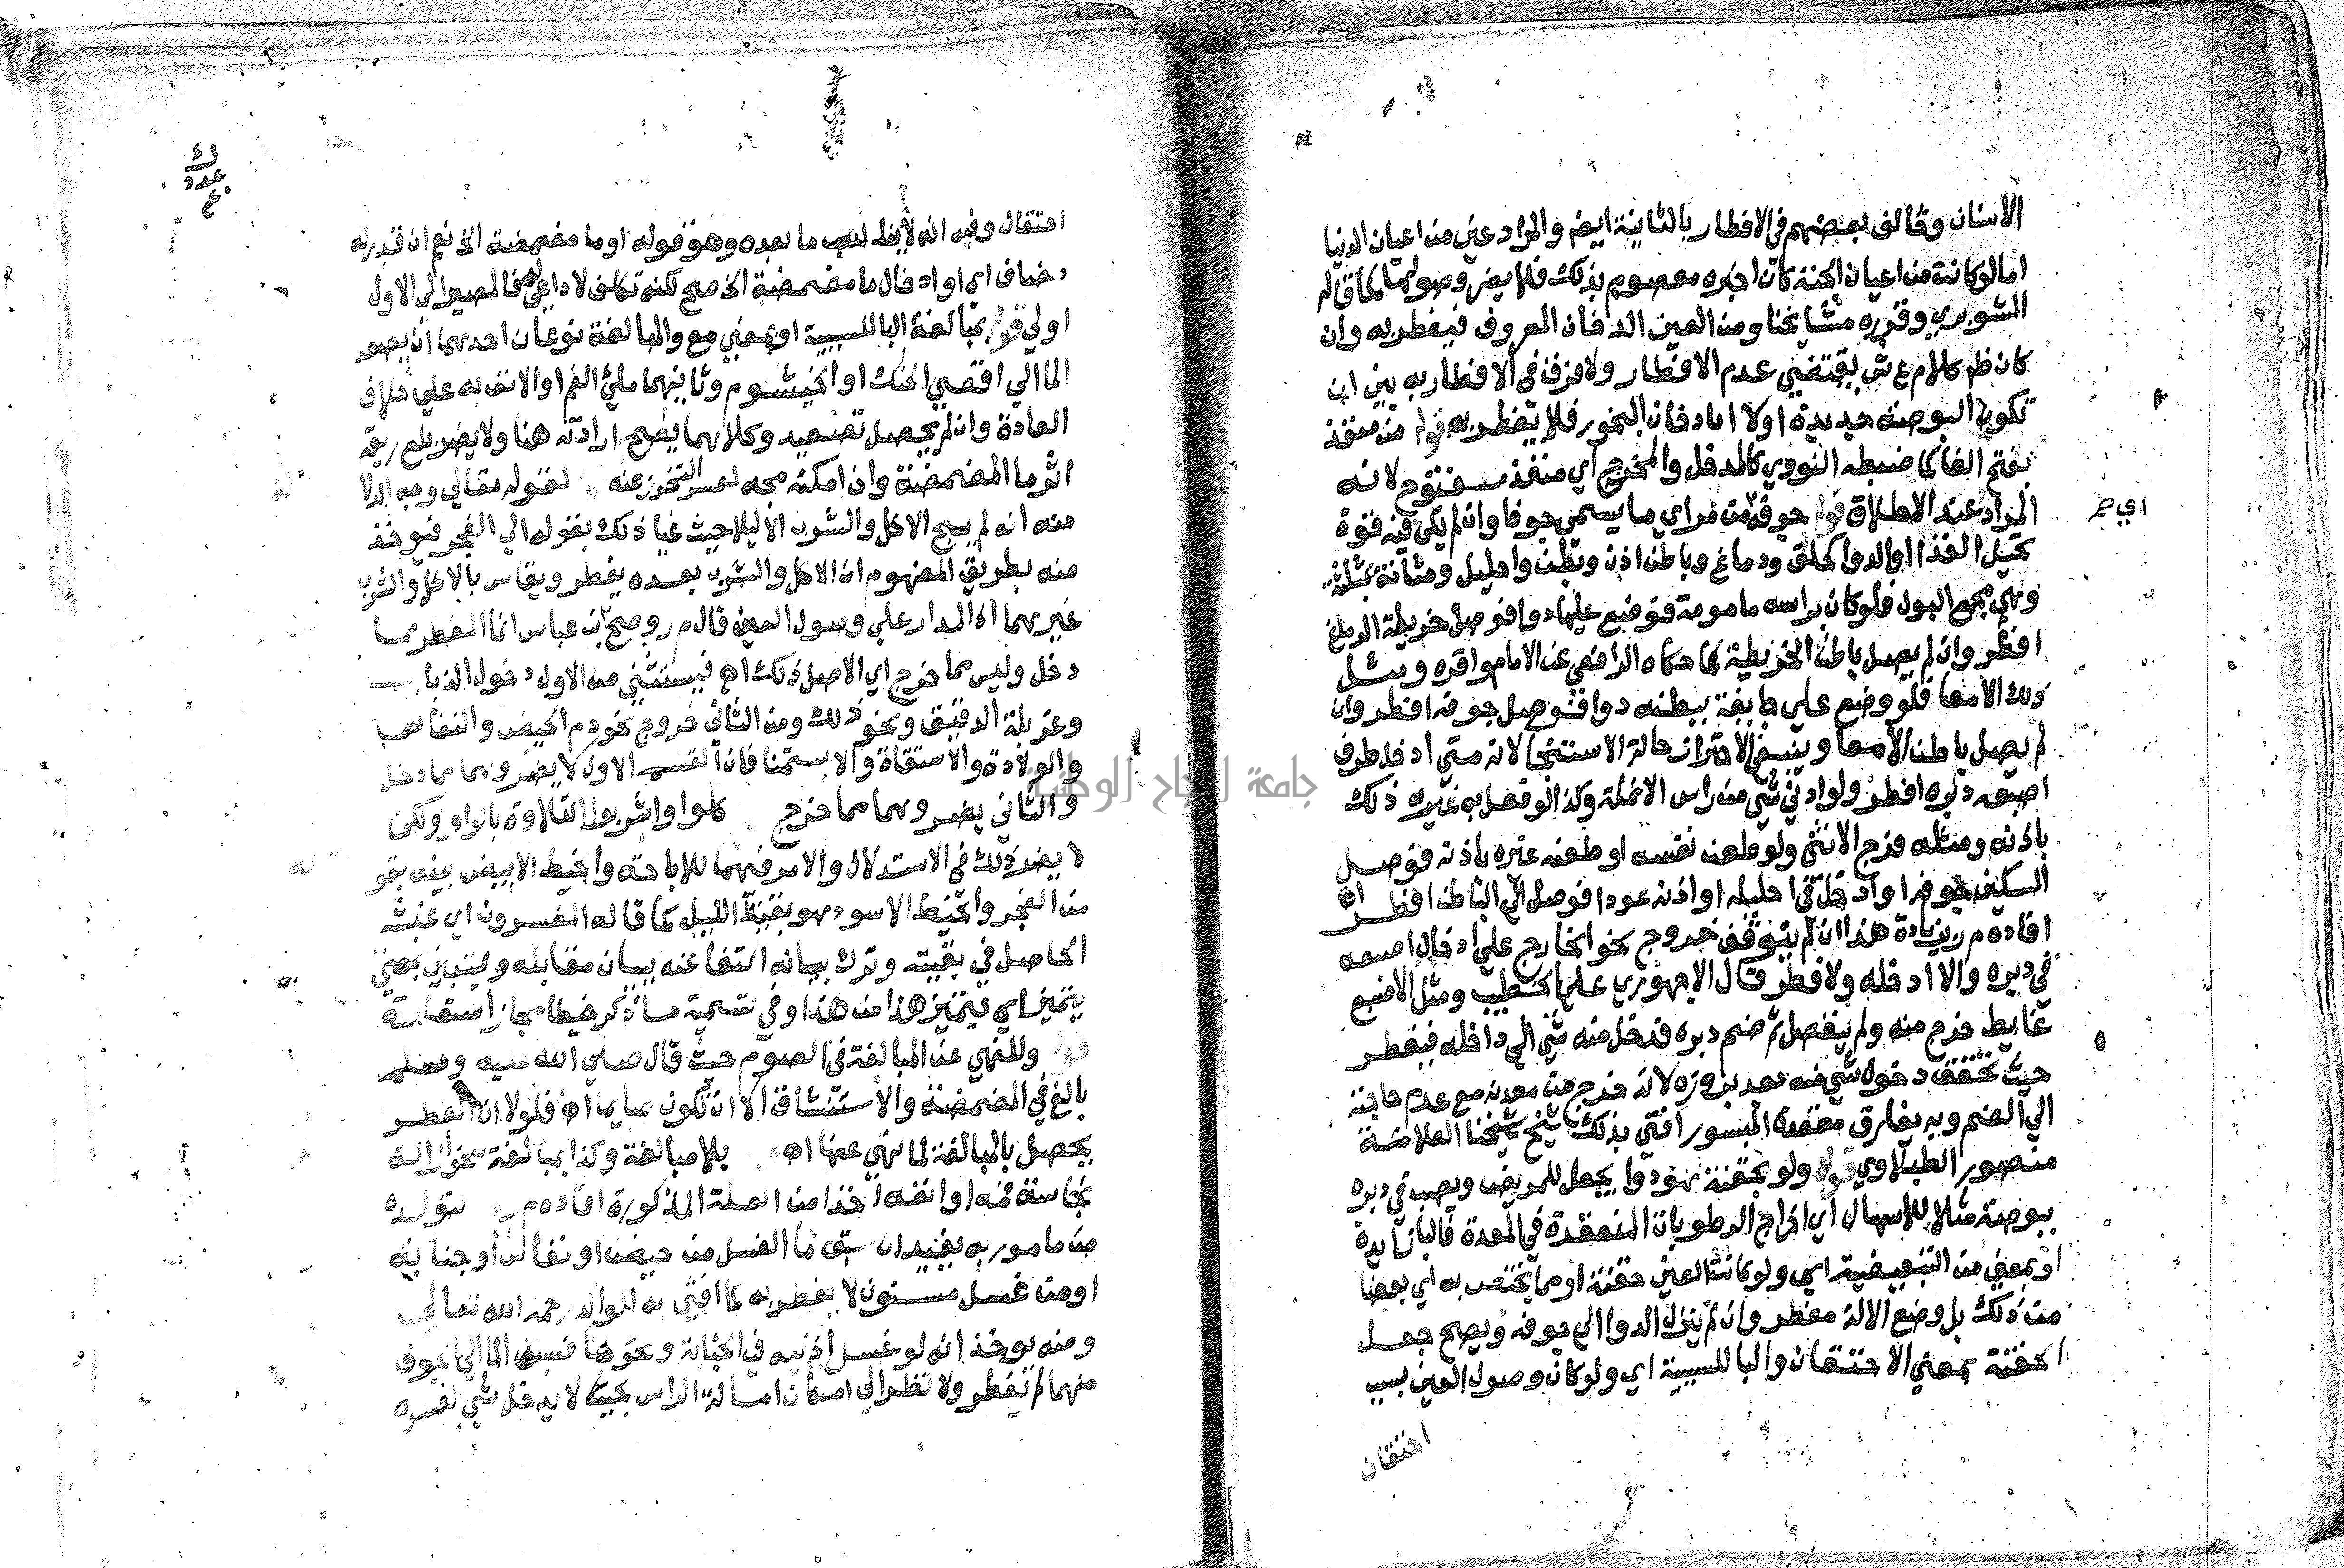 الاسنان وخالف بعضهم في الافطار بالثانية ايض والمراد عين من اعيان الدنيا
اما لو كانت من اعيان الجنة كان اخبره معصوم بذلك فلا يضر وصولها كما قاله
الشوبري وقرره مشايخنا ومن العين الدخان المعروف فيفطر به وان
كان ظ كلام ع ش يقتضي عدم الافطار ولا فرق في الافطار به بين ان
تكون البوصة جديدة اولا اما دخان البخور فلا يفطر به قوله من منفذ
بفتح الفا كما ضبطه النووي كالمدخل والمخرج اي منفذ مفتوح لانه
المراد عند الاطلاق قوله جوفه من مر اي ما يسمى جوفا وان لم يكن فيه قوة
اي ح
تحيل الغذا او الدوا كحلق ودماغ وباطن اذن وبطن واحليل ومثانة بمثلثة
وهي مجمع البول فلو كان براسه مامومة فوضع عليها دوا فوصل خريطة الدماغ
افطر وان لم يصل باطن الخريطة كما حكاه الرافعي عن الامام واقره ومثل
ذلك الامعا فلو وضع علي جايفة ببطنه دوا فوصل جوفه افطر وان
لم يصل باطن الامعا وينبغي الاحتراز حالة الاستنجا لانه متي ادخل طرف
اصبعه دبره افطر ولو ادني شي من راس الانملة وكذا لو فعل به غيره ذلك
باذنه ومثله فرج الانثي ولو طعن نفسه او طعنه غيره باذنه فوصل
السكين جوفه او ادخل في احليله او اذنه عودا فوصل الي الباطن افطر اه
افاده م ر بزيادة هذا ان لم يتوقف خروج نحو الخارج علي ادخال اصبعه
في دبره والا ادخله ولا فطر قال الاجهوري علي الخطيب ومثل الاصبع
غايط خرج منه ولم ينفصل ثم ضم دبره فدخل منه شي الي داخله فيفطر
حيث تحقق دخول شي منه بعد بروزه لانه خرج من معدنه مع عدم حاجته
الي الضم وبه يفارق مقعدة المبسور افتي بذلك شيخ شيخنا العلامة
منصور الطبلاوي قوله ولو بحقنة هو دوا يجعل للمريض ويصب في دبره
ببوصة مثلا للاسهال اي اخراج الرطوبات المنعقدة في المعدة فالبا زايدة
او بمعني من التبعيضية اي ولو كانت العين حقنة او مما يختص به اي بعضا
من ذلك بل وضع الالة مفطر وان لم ينزل الدوا الي جوفه ويصح جعل
الحقنة بمعني الاحتقان والبا للسببية اي ولو كان وصول العين بسبب
احتقان
ك
عدد
احتقان وفيه انه لا يناسب ما بعده وهو قوله او ما مضمضة الخ نعم ان قدر له
مضاف اي او ادخال ما مضمضة الخ صح لكنه تكلف لا داعي فالمصير الي الاول
اولي قوله بمبالغة البا للسببية او بمعني مع والمبالغة نوعان احدهما ان يصعد
الما الي اقصي الحنك او الخيشوم وثانيهما ملئ الفم او الانف به علي خلاف
العادة وان لم يحصل تصعيد وكلاهما يصح ارادته هنا ولا يضر بلع ريقه
اثر ما المضمضة وان امكنه مجه لعسر التحرز عنه لقوله تعالي وجه الدلا
لة
منه انه لم يبح الاكل والشرب الا ليلا حيث غيا ذلك بقوله الي الفجر فيوخذ
منه بطريق المفهوم ان الاكل والشرب بعده يفطر ويقاس بالاكل والشرب
غيرهما اذ المدار علي وصول العين قال م ر وصح عن ابن عباس انما الفطر مما
دخل وليس مما خرج اي الاصل ذلك اه فيستثني من الاول دخول الذباب
وغربلة الدقيق ونحو ذلك ومن الثاني خروج نحو دم الحيض والنفاس
والولادة والاستقاة والاستمنا فان القسم الاول لا يضر وهما مما دخل
والثاني يضر وهما مما خرج كلوا واشربوا التلاوة بالواو ولكن
لا يضر ذلك في الاستدلال والامر فيهما للاباحة والخيط الابيض بينه بقو
له
من الفجر والخيط الاسود هو بقية الليل كما قاله المفسرون اي غبشه
الحاصل في بقيته وترك بيانه اكتفا عنه ببيان مقابله ويتبين بمعني
يتميز اي يتميز هذا من هذا وفي تسمية ما ذكر خيطا مجاز استعارة
قوله وللنهي عن المبالغة في الصوم حيث قال صلي الله عليه وسلم
بالغ في المضمضة والاستنشاق الا ان تكون صايما اه فلولا ان الفطر
يحصل بالمبالغة لما نهي عنها اه بلا مبالغة وكذا بمبالغة نحو ازالة
نجاسة فمه او انفه اخذا من العلة المذكورة افاده م ر لتولده
من مامور به يفيد ان سبق ما الغسل من حيض او نفاس او جنابة
او من غسل مسنون لا يفطر به كما افتي به الوالد رحمه الله تعالي
ومنه يوخذ انه لو غسل اذنيه في الجنابة ونحوها فسبق الما الي الجوف
منهما لم يفطر ولا نظر الي امكان امالة الراس بحيث لا يدخل شي لعسره